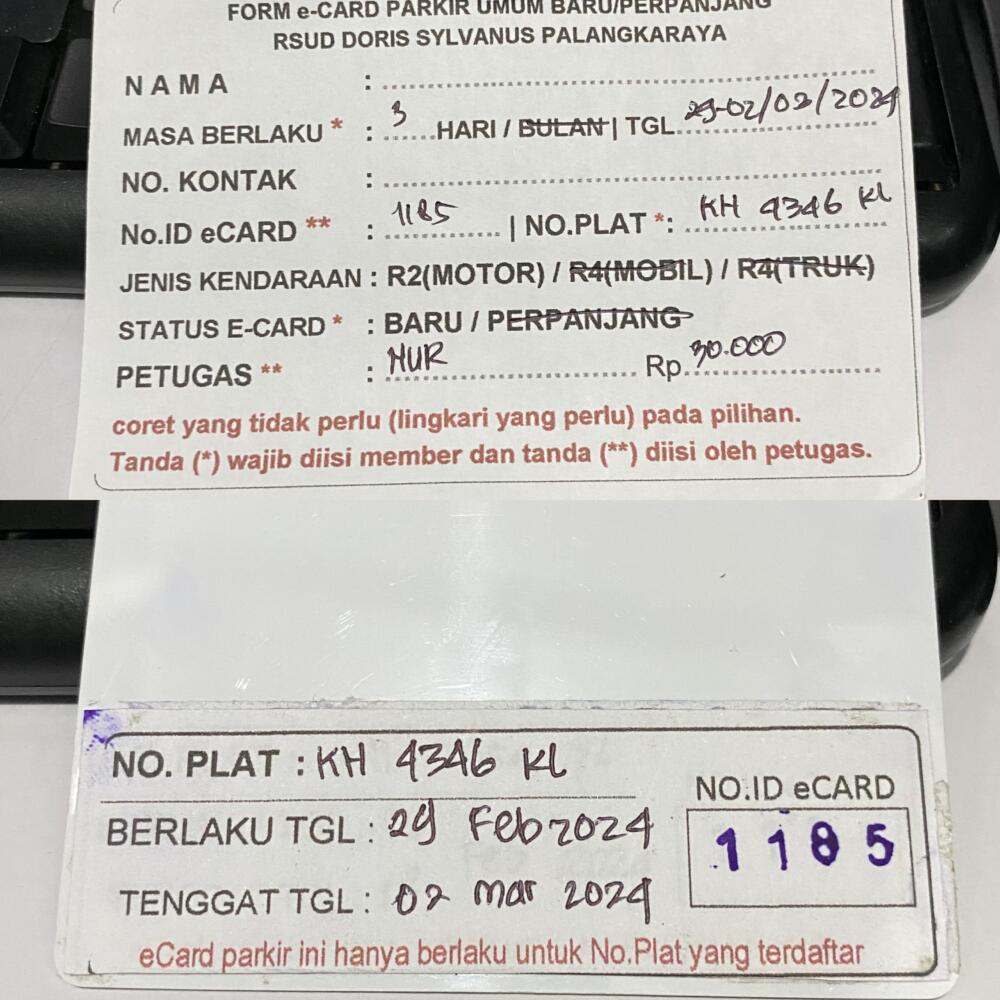 FORM e-CARD PARKIR UMUM BARU/PERPANJANG
RSUD DORIS SYLVANUS PALANGKARAYA
NAMA :
MASA BERLAKU * : 3 HARI / BULAN | TGL 29-02/02/2024
NO. KONTAK :
No.ID eCARD ** : 1185 | NO.PLAT *: KH 4346 KL
JENIS KENDARAAN : R2(MOTOR) / R4(MOBIL) / R4(TRUK)
STATUS E-CARD * : BARU / PERPANJANG
PETUGAS ** : NUR Rp. 30.000
coret yang tidak perlu (lingkari yang perlu) pada pilihan.
Tanda (*) wajib diisi member dan tanda (**) diisi oleh petugas.
NO. PLAT : KH 4346 KL
NO.ID eCARD
BERLAKU TGL : 29 Feb 2024
1185
TENGGAT TGL : 02 Mar 2024
eCard parkir ini hanya berlaku untuk No.Plat yang terdaftar